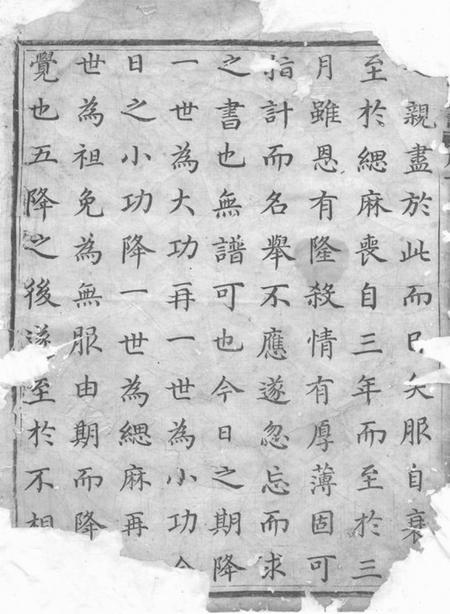 親盡於此而已矣服自衰
至於緦麻喪自三年而至於三
月雖恩有隆殺情有厚薄固可
指計而名舉不應遂忽忘而求
之書也無譜可也今日之期降
一世為大功再一世為小功今
日之小功降一世為緦麻再
世為祖免為無服由期而降
覺也五降之後遂至於不相